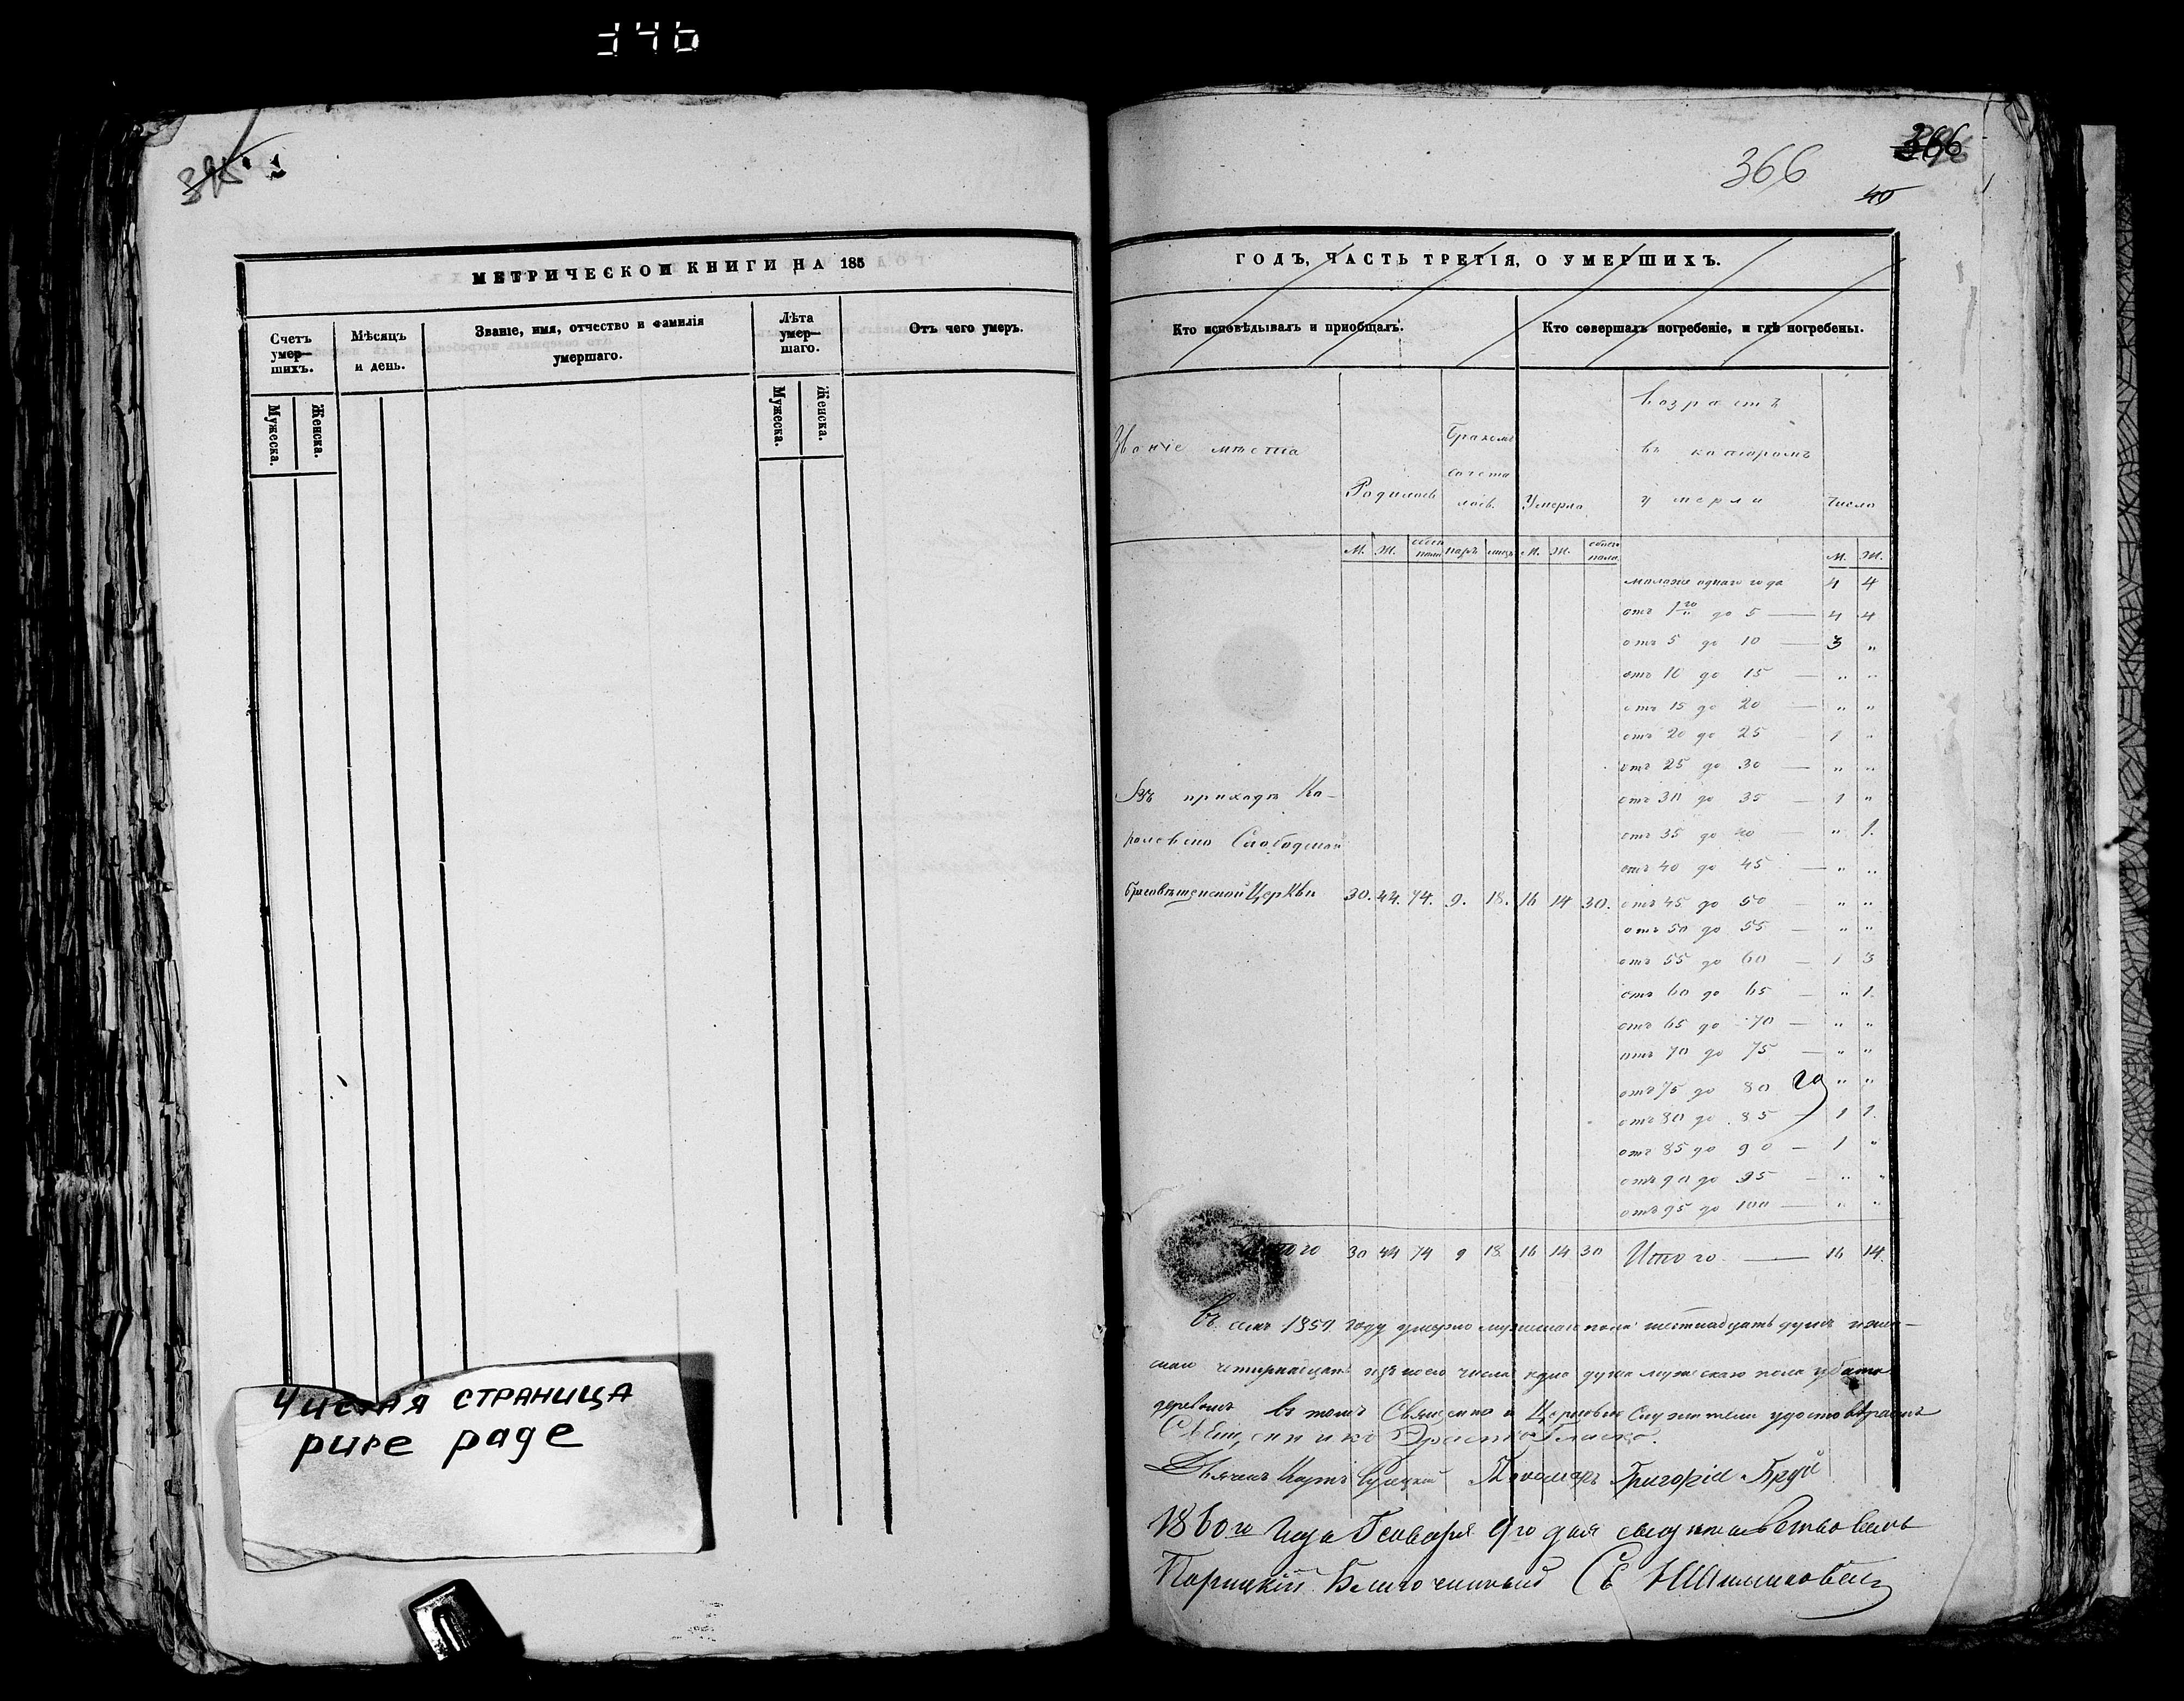 366
366
40
МЕТРИЧЕСКОЙ КНИГИ НА 185
Счетъ умер— шихъ.
Мѣсяцъ и день.
Званіе, имя, отчество и фамилія умершаго.
Лѣта умер— шаго.
Отъ чего умеръ.
Мужеска.
Женска.
Мужеска.
Женска.
Чистая страница
pure page
ГОДЪ, ЧАСТЬ ТРЕТІЯ, О УМЕРШИХЪ.
Кто исповѣдывалъ и пріобщалъ.
Кто совершалъ погребеніе, и гдѣ погребены.
Званіе мѣста
Родилось
Бракомъ сочета лось.
Умерло
Возрастъ
въ которомъ
умерли
Число
М. Ж. обоего пола паръ лицъ М. Ж. обоего пола М. Ж.
моложе одного года 4 4
отъ 1го до 5 — 4 4
отъ 5 до 10 — 3 „
отъ 10 до 15 — „ „
отъ 15 до 20 — „ „
отъ 20 до 25 — 1 „
отъ 25 до 30 — „ „
отъ 30 до 35 — 1 „
отъ 35 до 40 — „ 1.
отъ 40 до 45 — „ „
отъ 45 до 50 — „ „
отъ 50 до 55 — „ „
отъ 55 до 60 — 1 3
отъ 60 до 65 — „ 1.
отъ 65 до 70 — „ „
отъ 70 до 75 — „ „
отъ 75 до 80 „ „
отъ 80 до 85 — 1 1.
отъ 85 до 90 — 1 „
отъ 90 до 95 — „ „
отъ 95 до 100 — „ „
Въ приходѣ Ко-
ролевско Слободской
Благовѣщенской Церкви 30. 44. 74. 9. 18. 16 14 30.
Итого 30 44 74 9 18 16 14 30 Итого — 16 14.
Въ семъ 1859 году умерло мужескаго пола шестнадцать душъ и жен-
скаго четырнадцать изъ коего числа одна душа мужескаго пола убита
деревомъ въ томъ Священно и Церковно Служители удостовѣряемъ
Священникъ
Дьячекъ Пономарь Григорій
1860го Года Генваря 9го дня свидѣтельствовалъ
Паричскій Благочинный